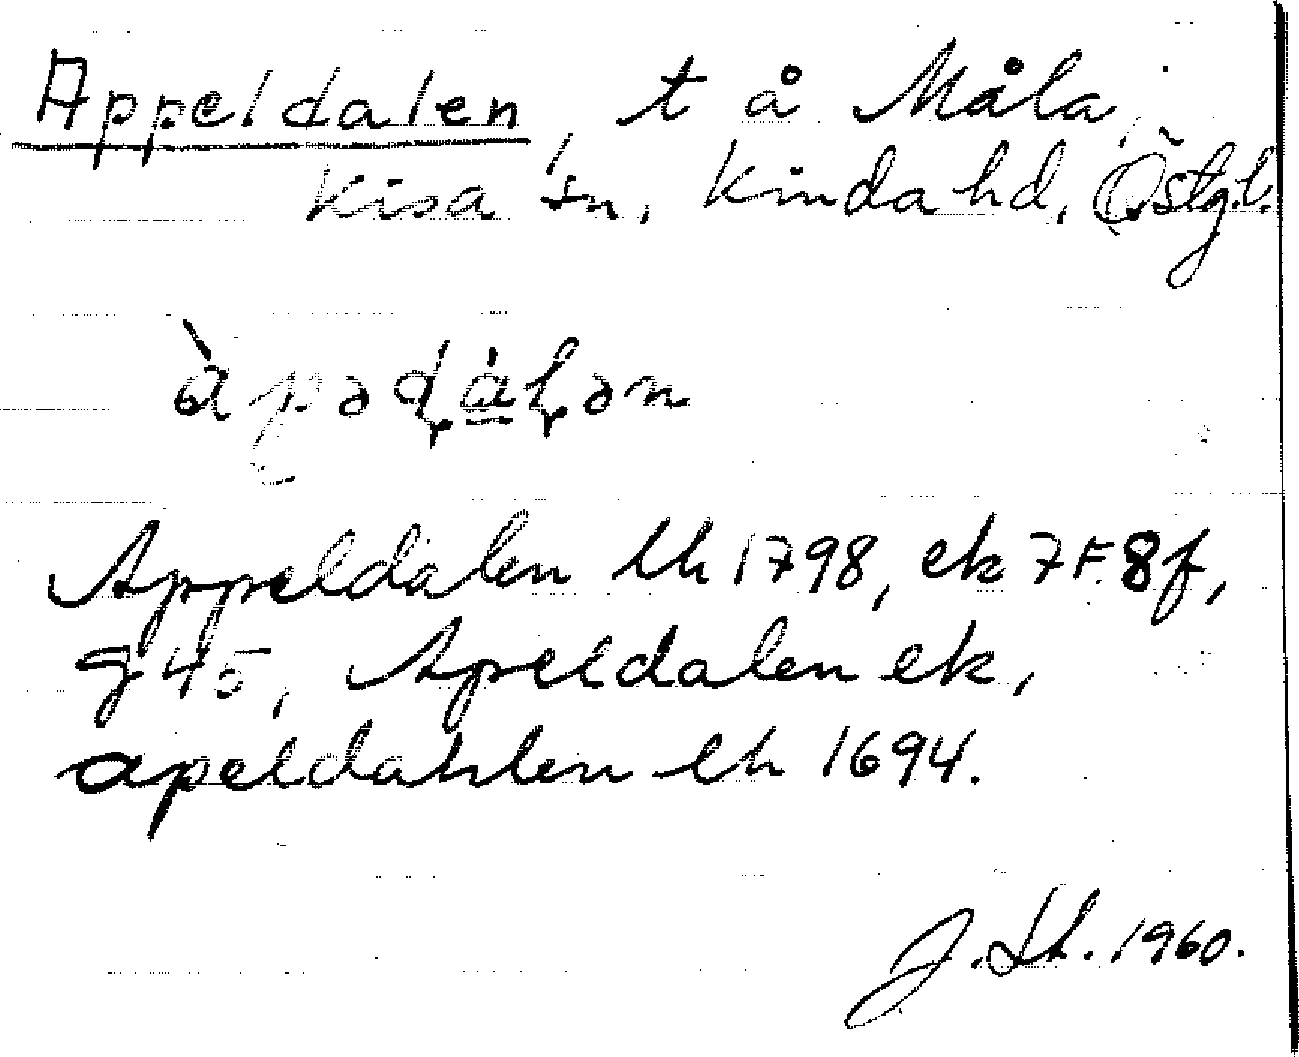 Appeldalen, t å Måla,
Kisa sn, Kinda hd, Östg.l.
àpədálən
Appeldalen lh 1798, ek 7F 8f,
g 45, Apeldalen ek,
apeldahlen lh 1694.
J. Sh. 1960.